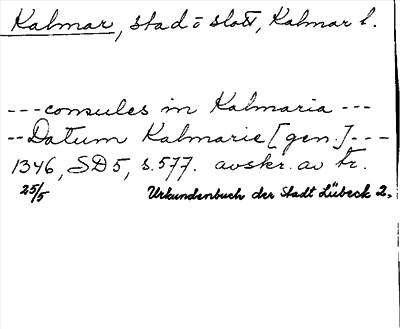 Kalmar, stad o slott, Kalmar l.
---consules in Kalmaria ---
--Datum Kalmarie [gen.]---
1346, SD5, s.577. avskr. av tr.
25/5 Urkundenbuch der Stadt Lübeck 2,